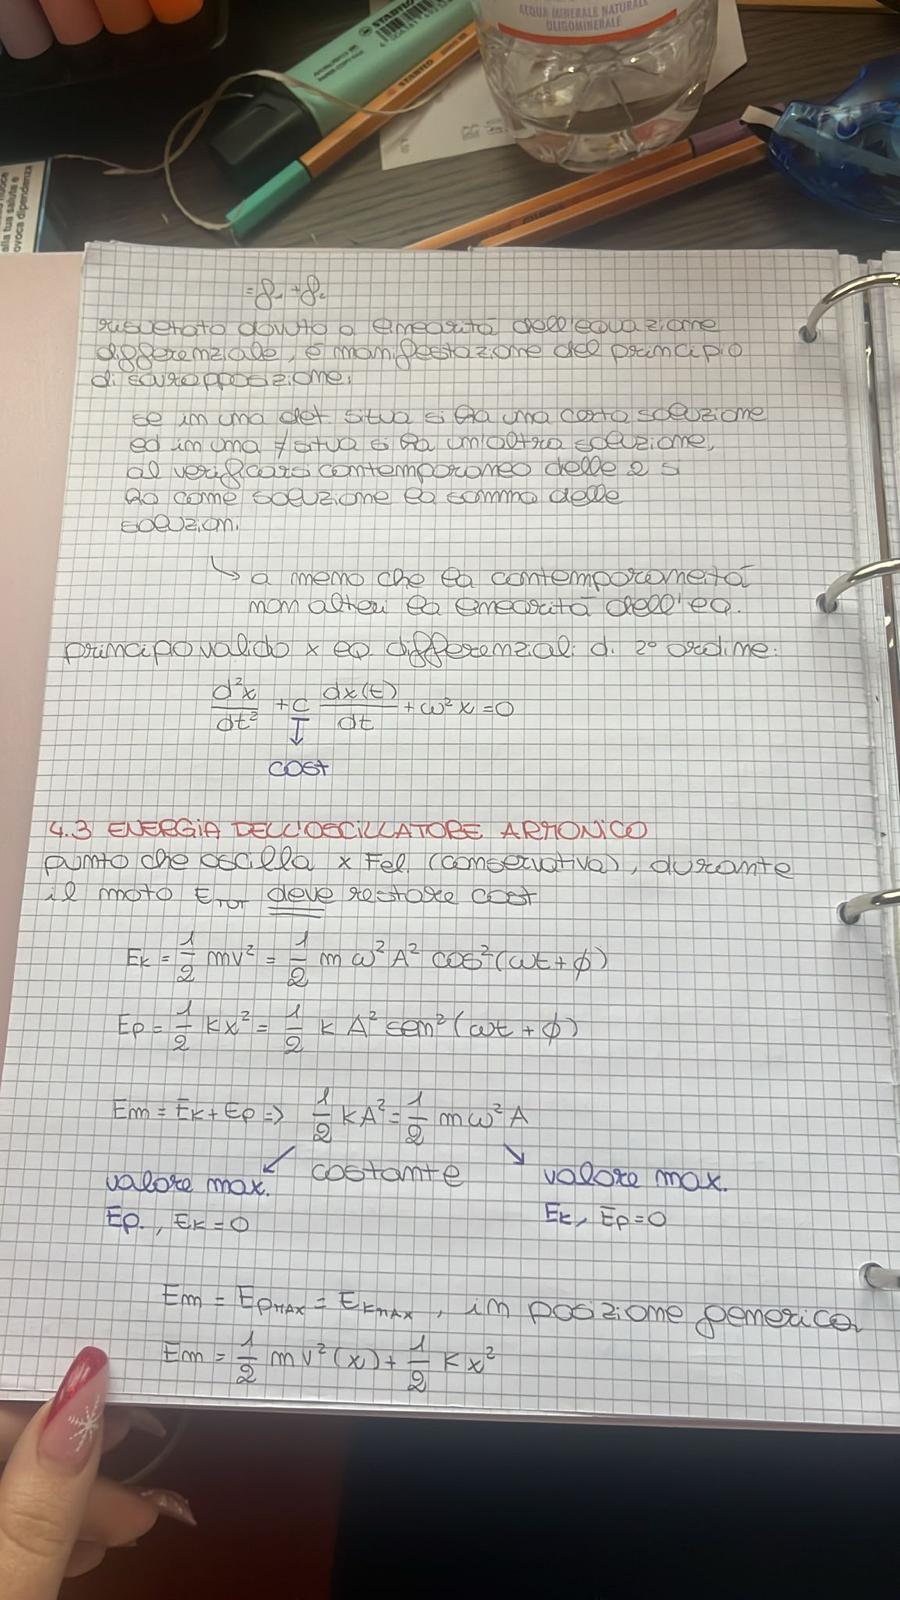 ACQUA MINERALE NATURALE
OLIGOMINERALE
STABILO
STABILO
alla tua salute e
ovoca dipendenza
risultato dovuto a linearità dell'equazione
differenziale, è manifestazione del principio
di sovrapposizione.
se in una det. situa si ha una certa soluzione
ed in una ≠ situa si ha un'altra soluzione,
al verificarsi contemporaneo delle 2 s
ha come soluzione la somma delle
soluzioni.
↳ a meno che la contemporaneità
non alteri la linearità dell'eq.
principo valido x eq differenziali di 2° ordine:
d²x/dt² + c dx(t)/dt + ω²x = 0
↓
cost
4.3 ENERGIA DELL'OSCILLATORE ARMONICO
punto che oscilla x Fel. (conservativa), durante
il moto ETOT deve restare cost
Ek = 1/2 mv² = 1/2 m ω² A² cos² (ωt + φ)
Ep = 1/2 Kx² = 1/2 K A² sen² (ωt + φ)
Em = Ek + Ep => 1/2 KA² = 1/2 mω²A
costante
valore max.
Ep., Ek = 0
valore max.
Ek, Ep = 0
Em = EpMAX = EkMAX, in posizione generica
Em = 1/2 mv²(x) + 1/2 Kx²